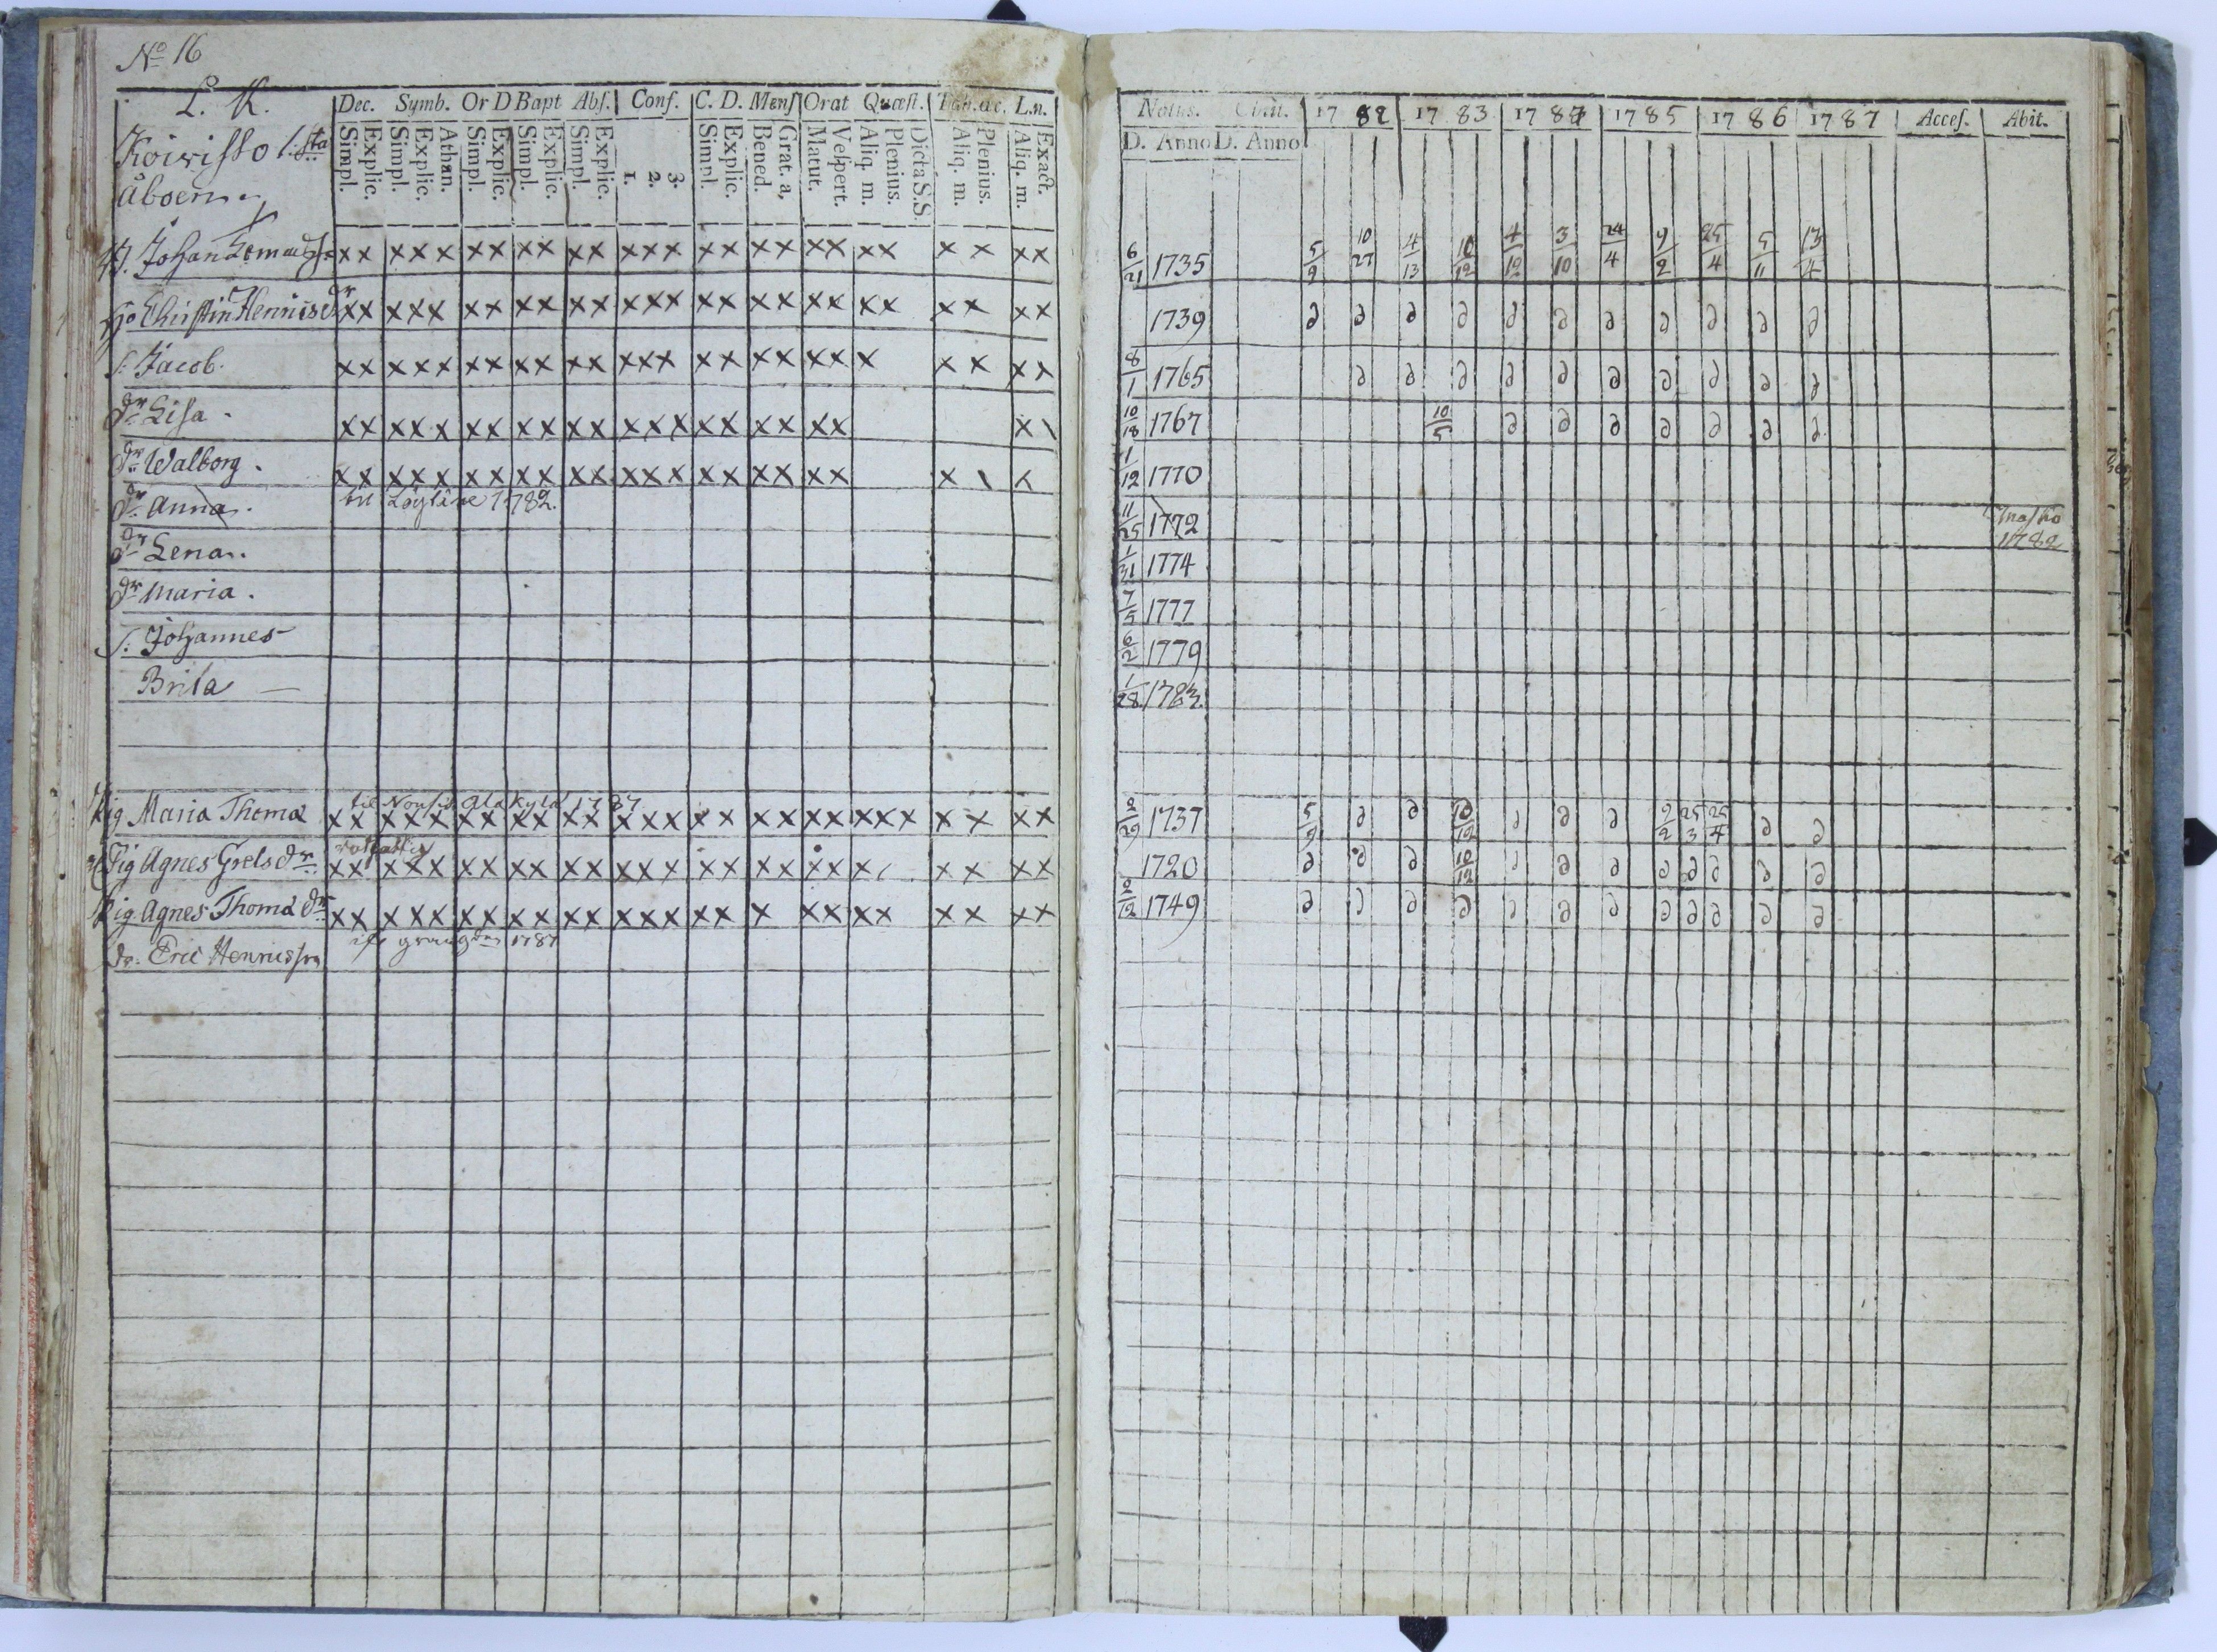 No 16
L. K.
Koivisto 1:sta
Åboen
Dec. Symb. Or D Bapt Abs. Conf. C. D. Mens Orat Quæst. L.n.
Simpl. Explic. Simpl. Explic. Athan. Simpl. Explic. Simpl. Explic. Simpl. Explic. 1. 2. 3. Simpl. Explic. Bened. Grat. a, Matut. Vespert. Aliq. m. Plenius. Dicta S.S. Aliq. m. Plenius. Aliq. m. Exact.
Natus. Obiit. 17 82 17 83 17 84 17 85 17 86 17 87 Acces. Abit.
D. Anno D. Anno
Johan xx xxx xx xx xx xxx xx xx xx xx x x xx 6/21 1735 5/9 10/27 4/13 10/12 4/12 3/10 24/4 9/2 25/4 5/11 13/4
Christin Henricsdr xx xxx xx xx xx xxx xx xx xx xx xx xx 1739 ∂ ∂ ∂ ∂ ∂ ∂ ∂ ∂ ∂ ∂ ∂
S. Jacob. xx xxx xx xx xx xxx xx xx xx x x x xx 8/1 1765 ∂ ∂ ∂ ∂ ∂ ∂ ∂ ∂ ∂ ∂
dr Lisa. xx xxx xx xx xx xxx xx xx xx x\ 10/18 1767 10/5 ∂ ∂ ∂ ∂ ∂ ∂ ∂
dr Walborg. xx xxx xx xx xx xxx xx xx xx x \ x 1/12 1770
dr Anna. til 1782. 11/25 1772 1782
dr Lena. 1/31 1774
dr Maria. 7/5 1777
S. Johannes 6/2 1779
Brita 1/28 1783.
til 1787
Pig Maria Thomæ xx xxx xx xx xx xxx xx xx xx xxx x x xx 2/29 1737 5/9 ∂ ∂ 10/12 ∂ ∂ ∂ 9/2 25/3 25/4 ∂ ∂
Pig Agnes Grels dr xx xxx xx xx xx xxx xx xx xx x x x xx 1720 ∂ ∂ ∂ 10/12 ∂ ∂ ∂ ∂ ∂ ∂ ∂ ∂
Pig. Agnes Thomæ dr xx xxx xx xx xx xxx xx x xx xx x x xx 2/12 1749 ∂ ∂ ∂ ∂ ∂ ∂ ∂ ∂ ∂ ∂ ∂ ∂
1787
dr. Eric Henricsson